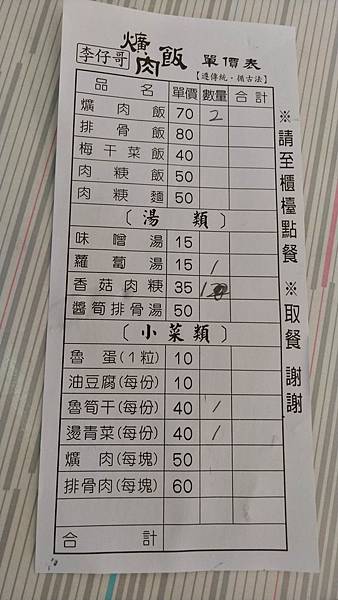 李仔哥 爌肉飯 單價表
【遵傳統‧循古法】
品名 單價 數量 合計
爌肉飯 70 2
排骨飯 80
梅干菜飯 40
肉粳飯 50
肉粳麵 50
〔湯類〕
味噌湯 15
蘿蔔湯 15 1
香菇肉粳 35 1
醬筍排骨湯 50
〔小菜類〕
魯蛋(1粒) 10
油豆腐(每份) 10
魯筍干(每份) 40 1
燙青菜(每份) 40 1
爌肉(每塊) 50
排骨肉(每塊) 60
合計
※請至櫃檯點餐 ※取餐 謝謝